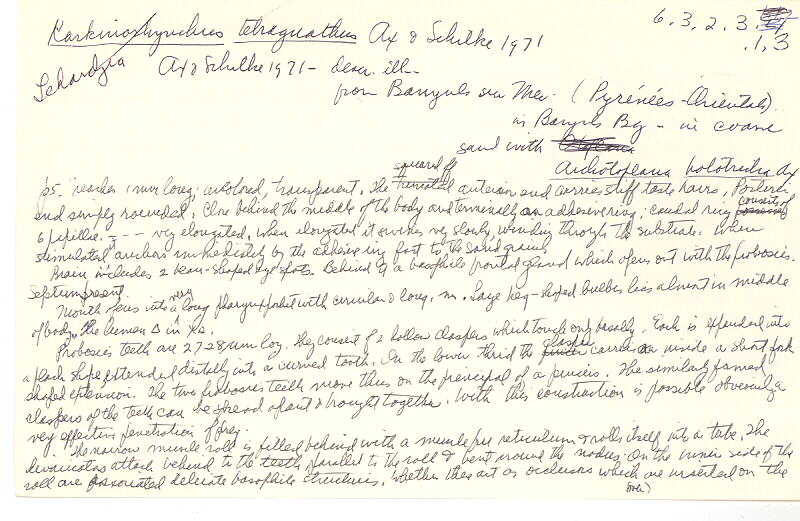 6.3.2.3.
.1,3
Karkinorhynchus tetragnathus Ax & Schilke 1971
Schardzia
Ax & Schilke 1971 - descr. ill.
from Banyuls sur Mer (Pyrénées-Orientals)
in Banyuls Bay - in coarse
sand with
Archotoplana holotricha Ax
squared off
p5. "reaches 1 mm long, uncolored, transparent. The anterior end carries stiff taste hairs, Posterior
end simply rounded. Close behind the middle of the body and terminally an adhesive ring; caudal ring consists of
6 papillae. --- very elongated, when elongated it swims very slowly, winding through the substrate. When
stimulated anchors immediately by the adhesive ring fast to the sand grains.
Brain includes 2 bean-shaped eye spots. Behind is a basophile frontal gland which opens out with the proboscis.
Septum present.
Mouth opens into a very long pharynx pocket with circular & long. m. Large keg-shaped bulbus lies almost in middle
of body, the lumen Δ in xs.
Proboscis teeth are 27-28 µm long. They consist of 2 hollow claspers which touch only basally. Each is expanded into
a flask shape extended distally into a curved tooth. In the lower third the clasper carries on inside a short fork
shaped extension. The two proboscis teeth move thus on the principal of a pincers. The similarly formed
claspers of the teeth can be spread apart & brought together. With this construction is possible obviously a
very effective penetration of prey.
The narrow muscle roll is filled behind with a muscle free reticulum & rolls itself into a tube. The
devaricators attach behind to the teeth, parallel to the roll & bent around the nodus. On the inner side of the
roll are associated delicate basophile structures, whether they act as occlusors which are inserted on the
(over)